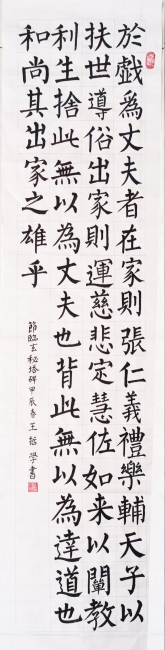 於戲為丈夫者在家則張仁義禮樂輔天子以
扶世導俗出家則運慈悲定慧佐如来以闡教
利生捨此無以為丈夫也背此無以為達道也
和尚其出家之雄乎
節臨玄秘塔碑甲辰春王哲學書